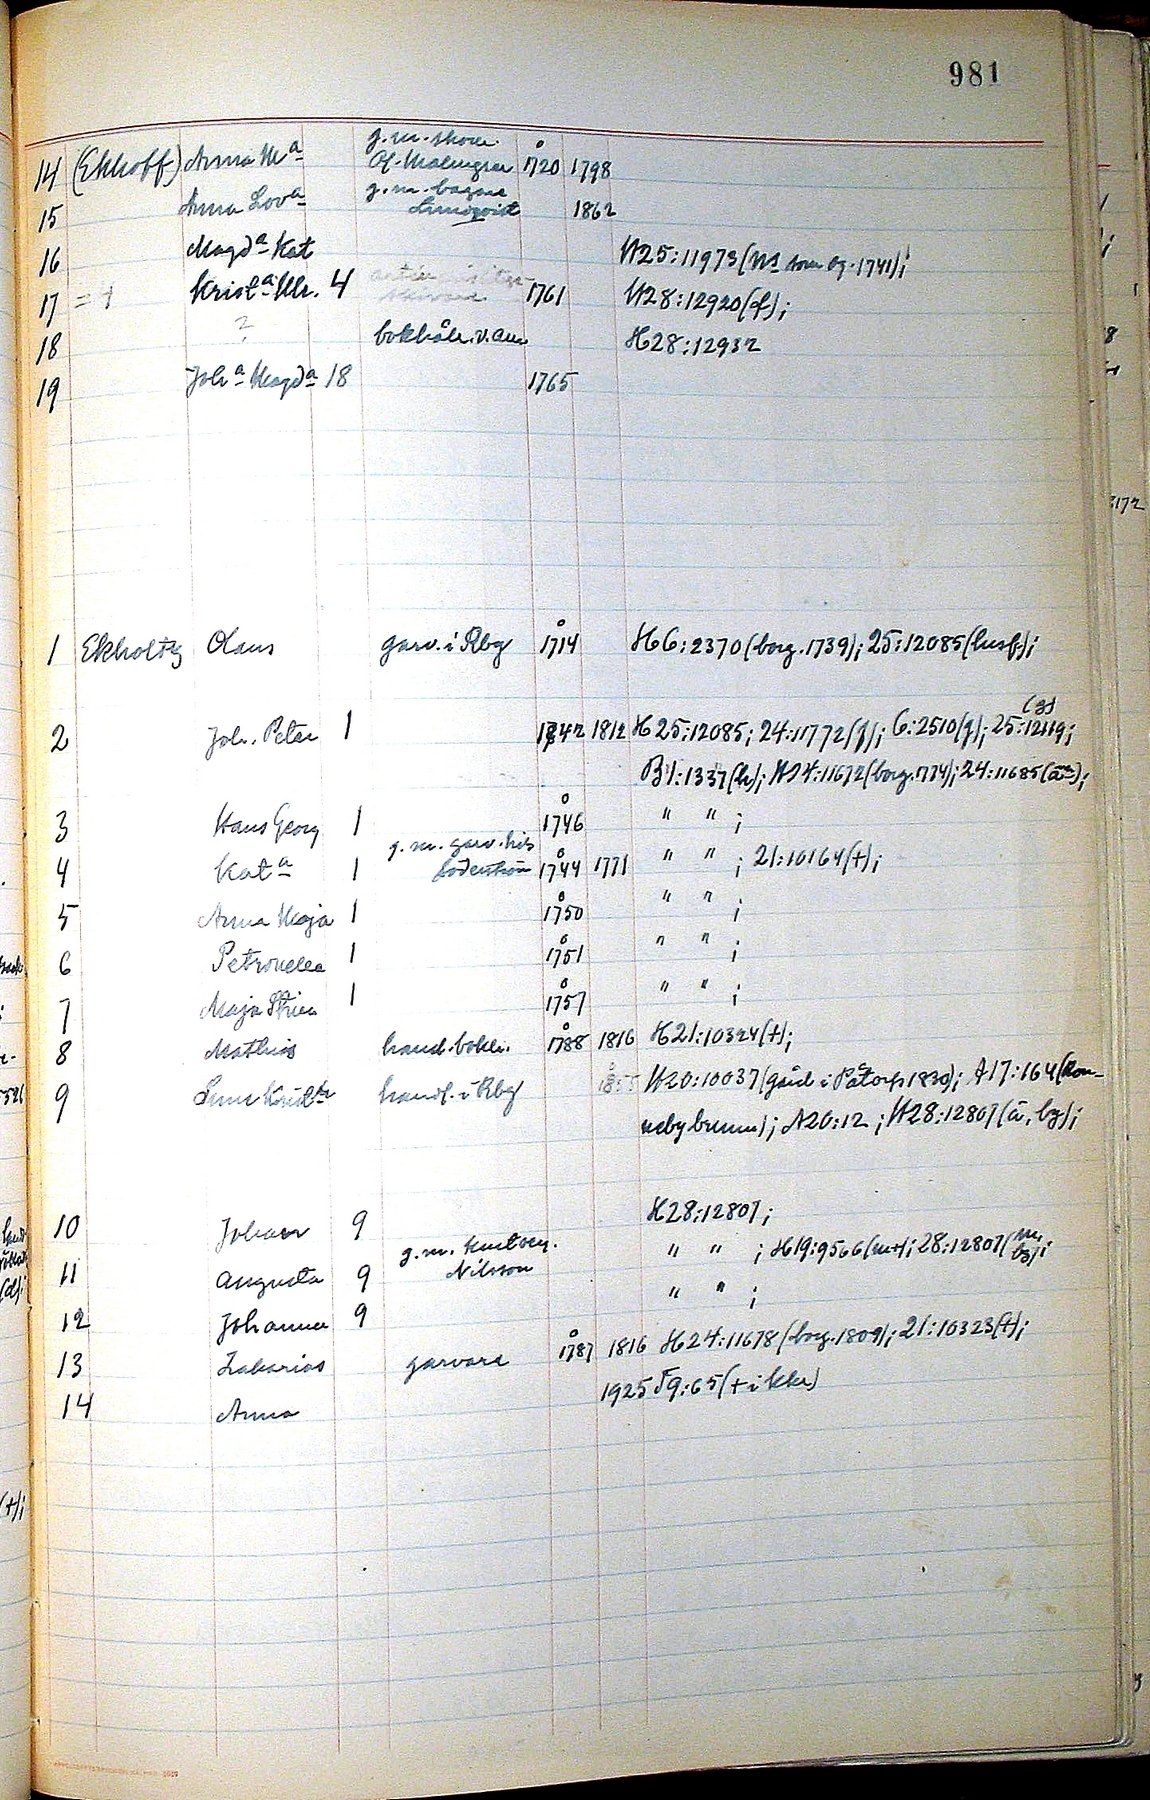 981
g. m. skom.
14 (Ekhoff) Anna Mᵃ Of. Malmgren 1720 1798
15 Anna Lovᵃ g. m. bagare Lundqvist 1862
16 Magdᵃ Kat H25:11973(
17 = 4 Kristᵃ Ulr. 4 1761 H28:12920(f);
18 ? bokhåll. v. H28:12932
19 Johᵃ Magdᵃ 18 1765
1 Ekholtz Olaus garv. i Rbg 1714 H6:2370(borg. 1739); 25:12085(husf);
2 Joh. Peter 1 1742 1812 H25:12085; 24:11772(f); 6:2510(f); 25:12119;
B1:1337(h); H24:11672(borg. 1774); 24:11685
3 Hans Georg 1 1746 " " ;
g. m. garv.
4 Katᵃ 1 Söderström 1744 1771 " " ; 21:10164(+);
5 Anna Maja 1 1750 " " ;
6 Petronella 1 1751 " " ;
7 Maja Stina 1 1757 " " ;
8 Mathias hand. bokh. 1788 1816 H21:10324(+);
9 handl. i Rbg 1855 H20:10037(gård i Påtorp 1830); A17:164(Ron-
neby brunn); A20:12; H28:12807(å, bg);
10 Johan 9 H28:12807;
11 Augusta 9 g. m. Nilsson " " ; H19:9566(m+); 28:12807(
12 Johanna 9 " " ;
13 Zakarias garvare 1787 1816 H24:11678(borg. 1809); 21:10323(+);
14 Anna 1925 F9:65(+ i kkr)